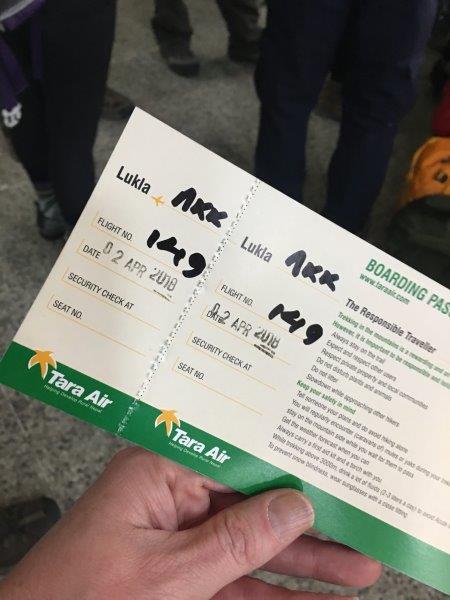 Lukla AKK
FLIGHT NO. 149
DATE 02 APR 2018
SECURITY CHECK AT
SEAT NO.
Tara Air
Helping Develop Rural Nepal
Lukla AKK
FLIGHT NO. 149
DATE 02 APR 2018
SECURITY CHECK AT
SEAT NO.
Tara Air
Helping Develop Rural Nepal
BOARDING PAS
www.taraair.com
The Responsible Traveller
Trekking in the mountains is a rewarding and
However, it is important to be responsible and
Always stay on the trail
Expect and respect other users
Respect private property and local communities
Do not disturb plants and animals
Do not litter
Slowdown while approaching other hikers
Keep your safety in mind
Tell someone your plans and do avoid hiking alone
You will regularly encounter (caravans of) mules or yaks during your
stay on the mountain side while you wait for them to pass
Get the weather forecast when you can
Always carry a first aid kit and a torch with you
While trekking above 3000m, drink a lot of fluids (2-3 liters a day) to avoid
To prevent snow blindness, wear sunglasses with a close fitting